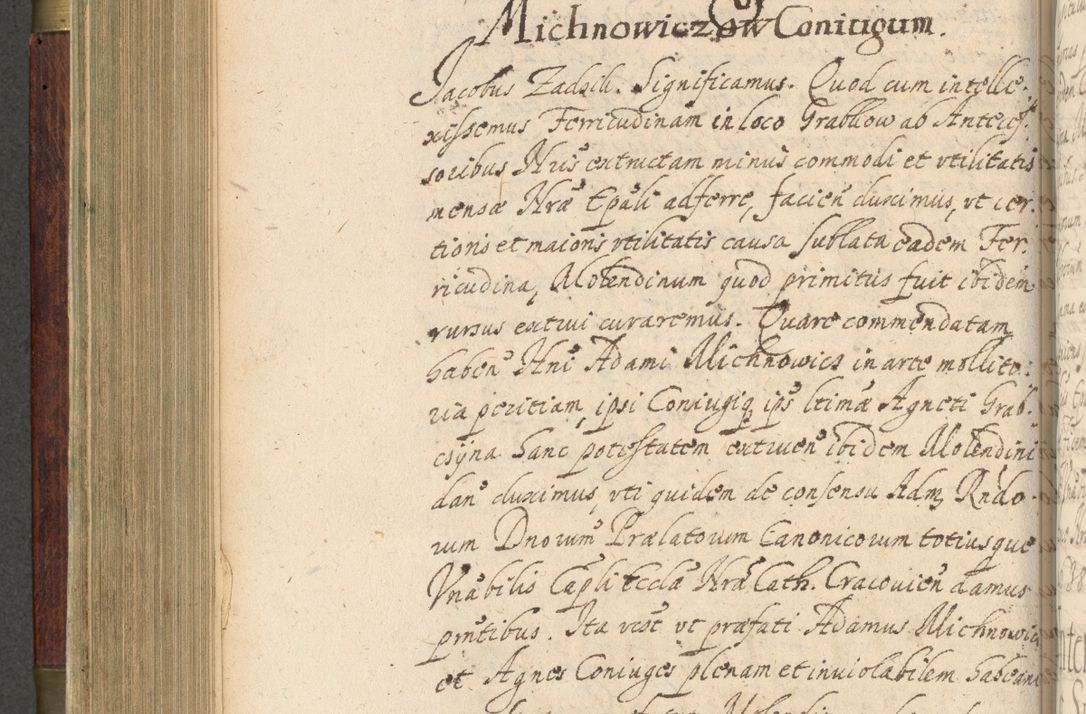 Michnowiczow Coniugum.
Jacobus Zadzik. Significamus. Quod cum intelle-
xissemus Ferricudinam in loco Grabkow ab Anteces-
soribus Nris extructam minus commodi et vtilitatis
mensæ Nræ Epali adferre, facien duximus, vt cer-
tioris et maioris vtilitatis causa sublata eadem Fer-
ricudina, Molendinum quod primitus fuit ibidem
rursus extrui curaremus. Quare commendatam
haben Hni Adami Michnowicz in arte mollito-
ria peritiam, ipsi Coniugiq ips ltimæ Agneti Grab-
csyna hanc potestatem extruen ibidem Molendini
dan duximus, vti quidem de consensu Adm Rndo-
rum Dnorum Prælatorum Canonicorum totiusque
Vnabilis Capli Eccla Nræ Cath. Cracovien damus
pntibus. Ita vt præfati Adamus Michnowicz
et Agnes Coniuges plenam et inviolabilem habeant